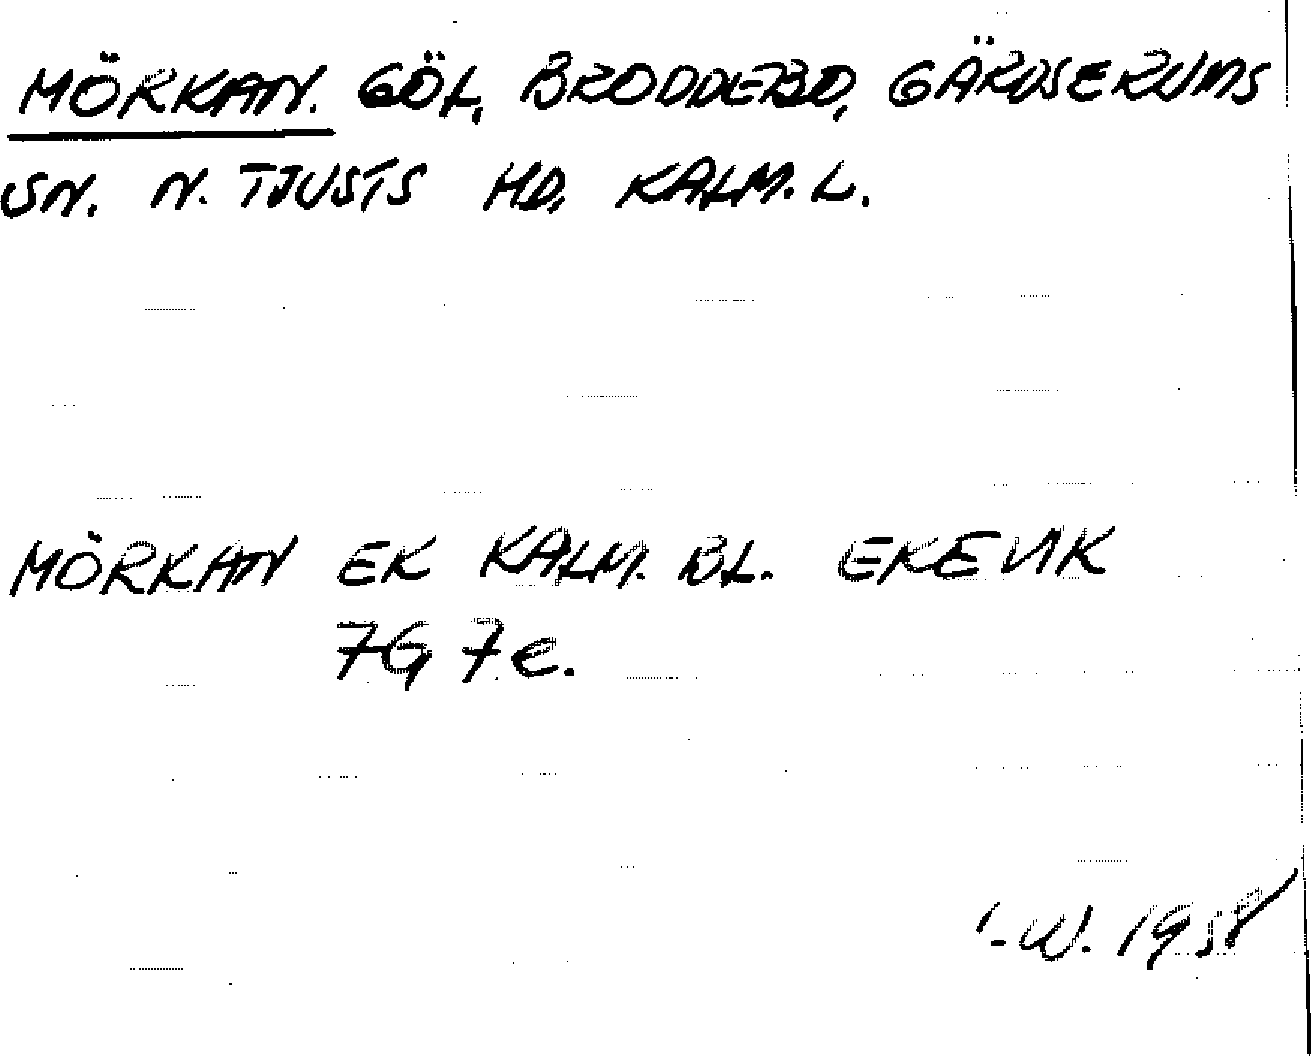 MÖRKAN. GÖL, BRODDEBO, GÄRDSERUMS
SN. N. TJUSTS HD, KALM. L.
MÖRKAN EK KALM. BL. EKEVIK
7G 7e.
-W. 1958